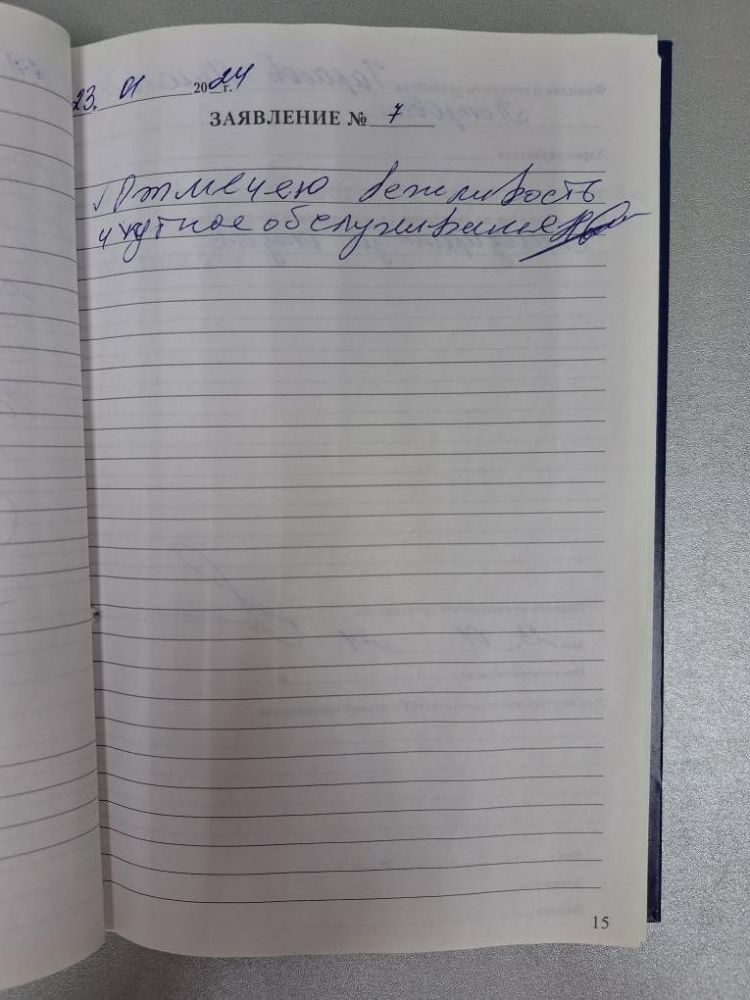 23. 01 2024 г.
ЗАЯВЛЕНИЕ № 7
Отмечею вежливость
и чуткое обслуживание
15